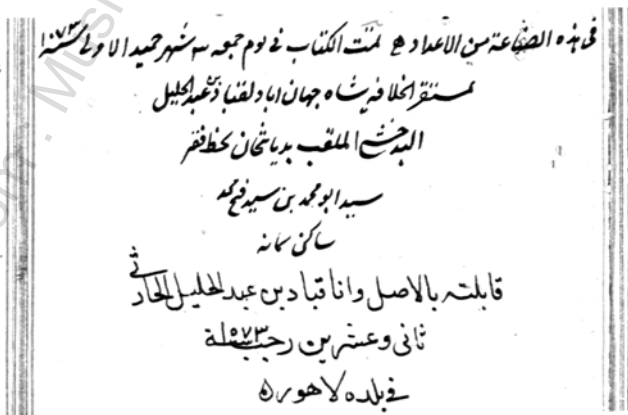 فی هذه الصناعة من الاعداد تمت الکتاب فی یوم جمعه شهر جمید الاولی سنه ۱۰۷۳
مستقر الخلافه شاه جهان اباد لقباد بن عبد الجلیل
البدخشی الملقب بدیانتخان بخط فقیر
سید ابو محمد بن سید فتح محمد
ساکن سمانه
قابلته بالاصل وانا قباد بن عبد الجلیل الحارثی
ثانی وعشرین رجب سنة ۱۰۷۳
فی بلده لاهور